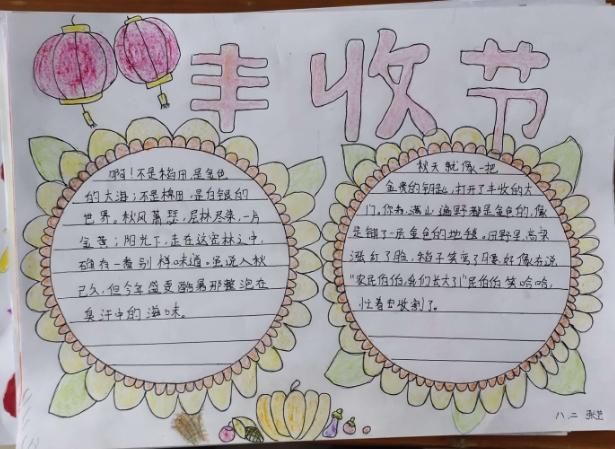 丰收节
啊！不是稻田,是金色
的大海；不是棉田,是白银的
世界。秋风萧瑟,层林尽染,一片
金黄；阳光下,走在这密林之中,
确有一番别样味道。虽说入秋
已久,但今年盛夏酷暑那整泡在
臭汗中的滋味。
秋天就像一把
金黄的钥匙,打开了丰收的大
门。你看,满山遍野都是金色的,像
是铺了一层金色的地毯。田野里,高粱
涨红了脸,稻子笑弯了腰,好像在说
"农民伯伯,我们长大了!"农民伯伯笑哈哈,
忙着去收割了。
八.二